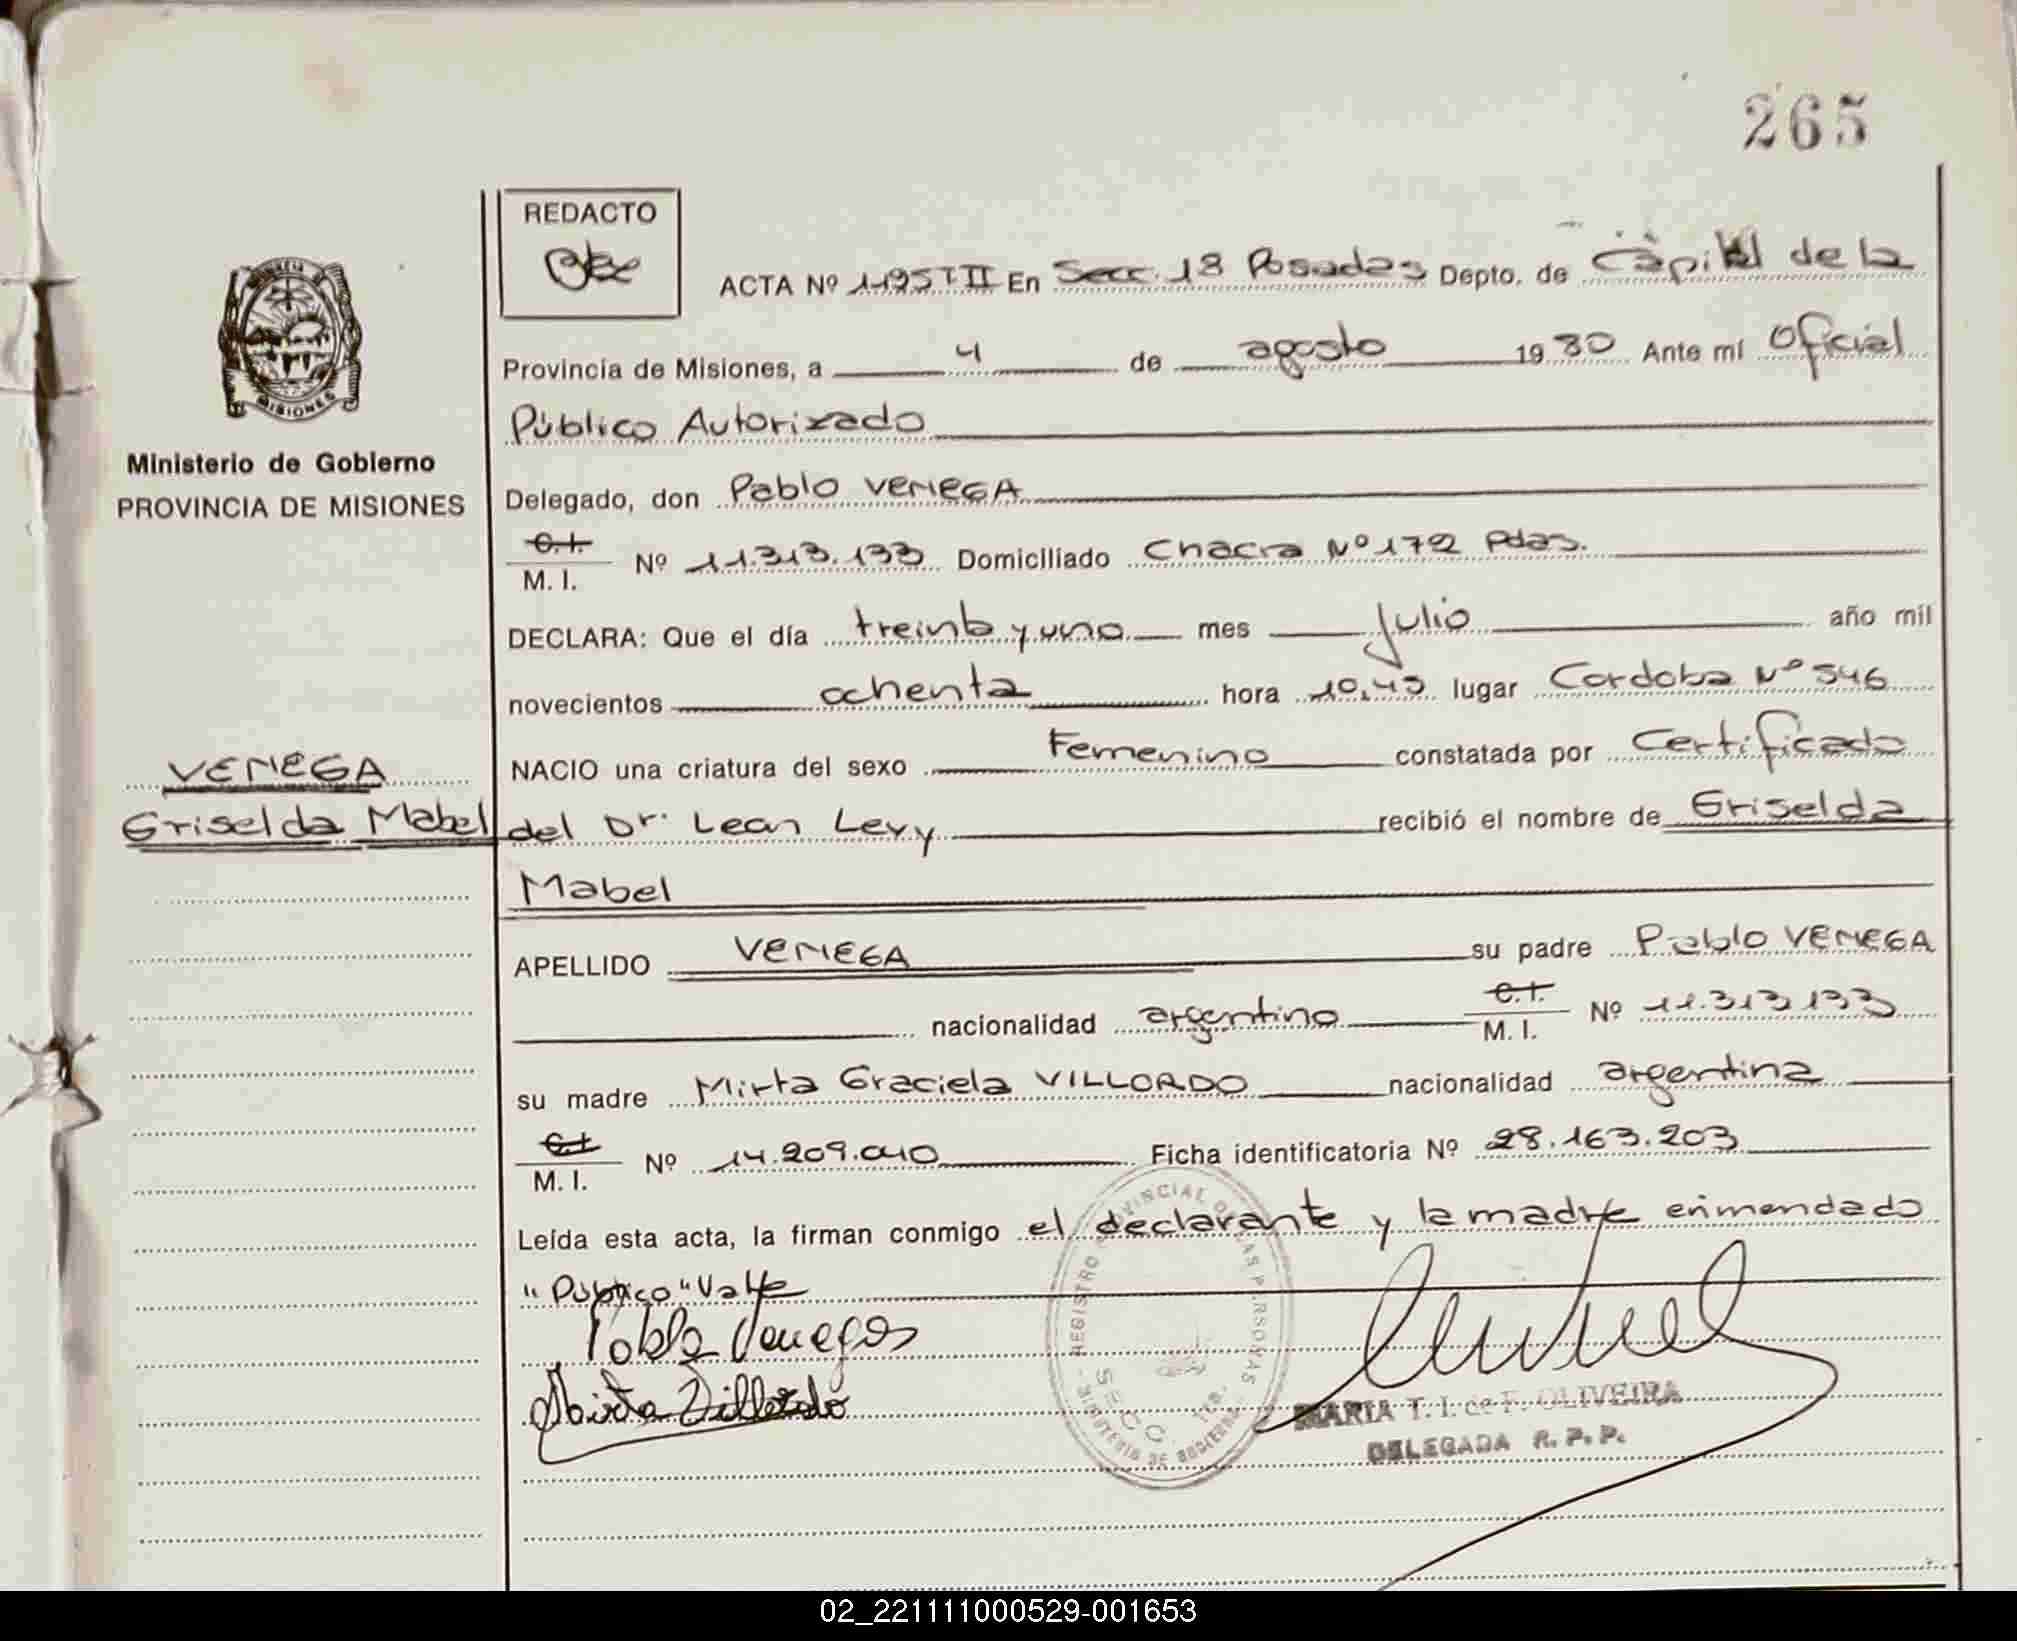 265
REDACTO
ACTA Nº 1195 T II En Secc. 1ª Posadas Depto. de Capital de la
Provincia de Misiones, a 4 de agosto 1980 Ante mí Oficial
Público Autorizado
Ministerio de Gobierno
PROVINCIA DE MISIONES
MISIONES
Delegado, don Pablo VENEGA
C.I.
M. I. Nº 11.313.133 Domiciliado Chacra Nº 172 Pdas.
DECLARA: Que el día treinta y uno mes Julio año mil
novecientos ochenta hora 10,45 lugar Cordoba Nº 546
NACIO una criatura del sexo Femenino constatada por Certificado
VENEGA
Griselda Mabel
del Dr. Lean Levy recibió el nombre de Griselda
Mabel
APELLIDO VENEGA su padre Pablo VENEGA
nacionalidad argentino C.I. M. I. Nº 11.313.133
su madre Mirta Graciela VILLORDO nacionalidad argentina
C.I.
M. I. Nº 14.209.040 Ficha identificatoria Nº 28.163.203
Leída esta acta, la firman conmigo el declarante y la madre enmendado
"Público" Vale
Pablo Venegas
Mirta Villordo
REGISTRO PROVINCIAL DE LAS PERSONAS
SECC. 1ra.
MINISTERIO DE GOBIERNO
MARIA T. I. de F. OLIVEIRA
DELEGADA R. P. P.
02_221111000529-001653